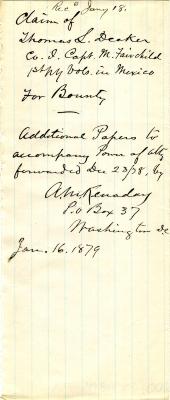 Rec'd Jany 18.
Claim of
Thomas L. Decker
Co. I. Capt. M. Fairchild
1st Ny Vols. in Mexico
For Bounty
Additional Papers to
accompany Power of atty
forwarded Dec 23/78, by
A M Kenaday
P.O Box 37
Washington DC
Jan. 16. 1879